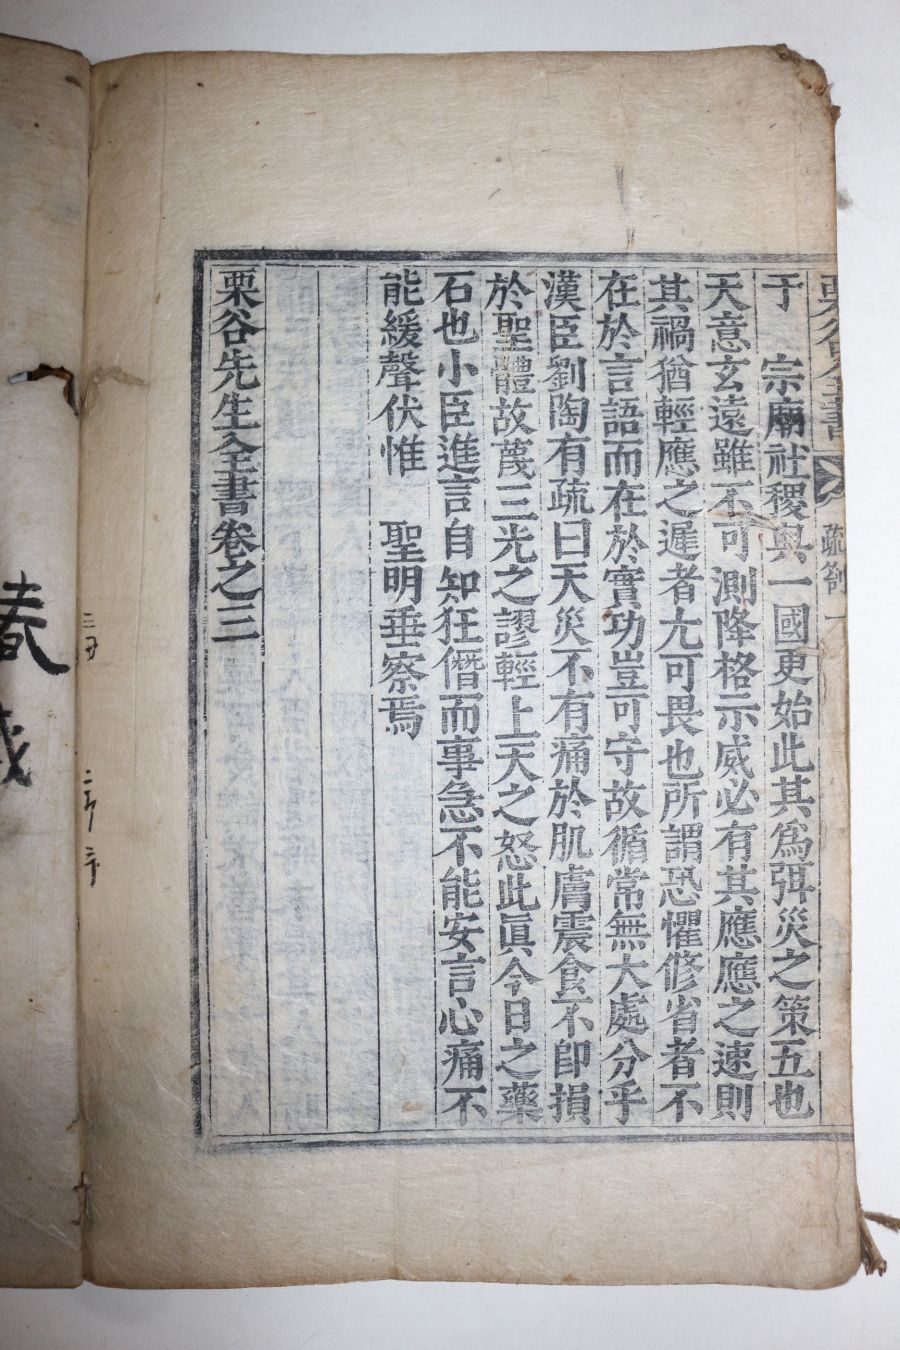 栗谷全書
疏箚一
于　宗廟社稷與一國更始此其爲弭災之策五也
天意玄遠雖不可測降格示威必有其應應之速則
其禍猶輕應之遲者尤可畏也所謂恐懼修省者不
在於言語而在於實功豈可守故循常無大處分乎
漢臣劉陶有疏曰天災不有痛於肌膚震食不卽損
於聖體故蔑三光之謬輕上天之怒此眞今日之藥
石也小臣進言自知狂僭而事急不能安言心痛不
能緩聲伏惟　聖明垂察焉
栗谷先生全書卷之三